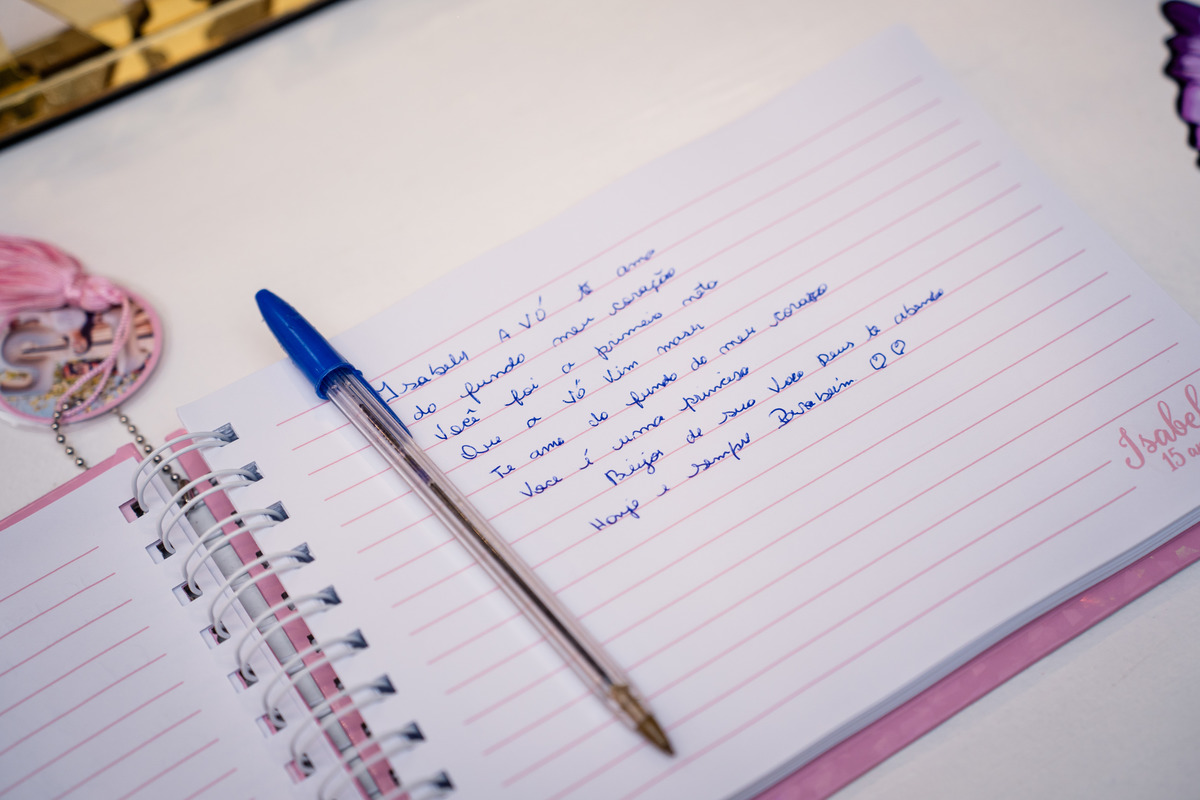 Isabely A VÓ te amo
do fundo meu coração
Você foi a primeira neta
Que a vó
Te amo do fundo do meu coração
Voce é uma princesa
Beijos de sua Voco Deus te abençoe
Hoje e sempre Parabéin
Isabel
15 an